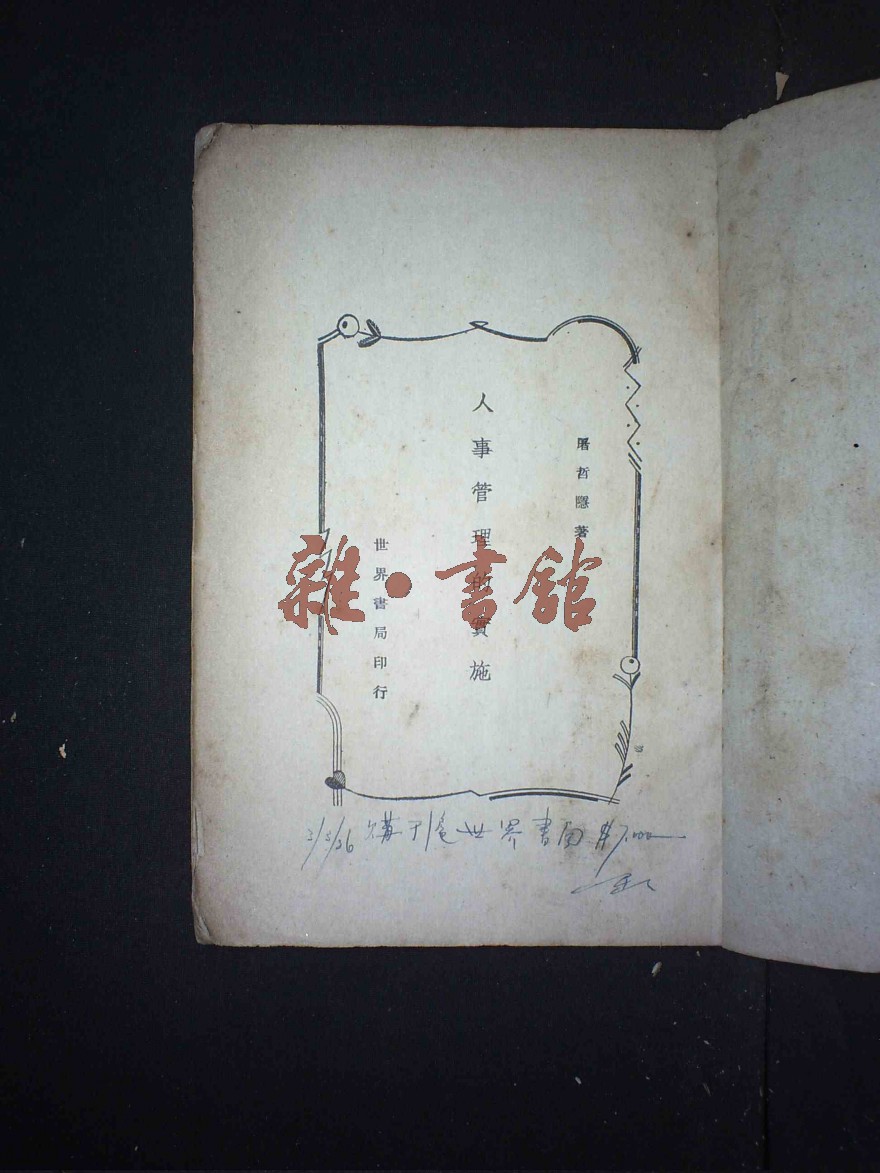 屠哲隱著
人事管理的實施
世界書局印行
雜·書館
購于滬世界書局